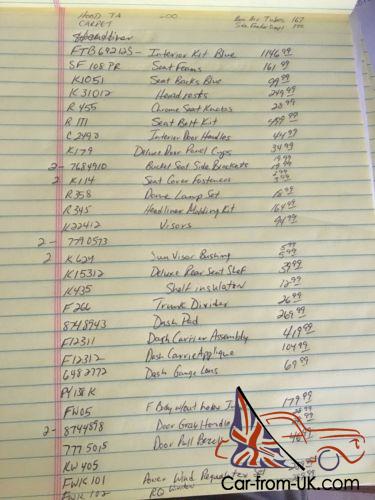 HOOD TA
CARPET
Headliner
FTB69212S - Interior Kit Blue 1146.99
SF 108 PR Seat Foams 161.99
K1051 Seat Backs Blue 99.99
K31012 Headrests 249.99
R455 Chrome Seat Knobs 20.99
R111 Seat Belt Kit
C2490 Interior Door Handles 44.99
K179 Deluxe Door Panel Cups 34.99
2- 7684910 Bucket Seat Side Brackets 19.99 19.99
2 K114 Seat Cover Fasteners
R358 Dome Lamp Set
R345 Headliner Molding Kit 164.99
K22412 Visors 94.99
2- 7790573
2 K624 Sun Visor Bushing 5.99 5.99
K15312 Deluxe Rear Seat Shelf 39.99
K435 Shelf insulator 12.99
F266 Trunk Divider 26.99
8748943 Dash Pad 269.99
F12311 Dash Carrier Assembly 419.99
F12312 Dash Carrie Applique 104.99
6482772 Dash Gauge Lens 69.99
FW05 179.99
2- 8744578 Door Gray Handle
777 5015 Door Pull
KW405
FWIK101 Power Wind Regulator
FWIK 102 RQ Window
Car-from-UK.com